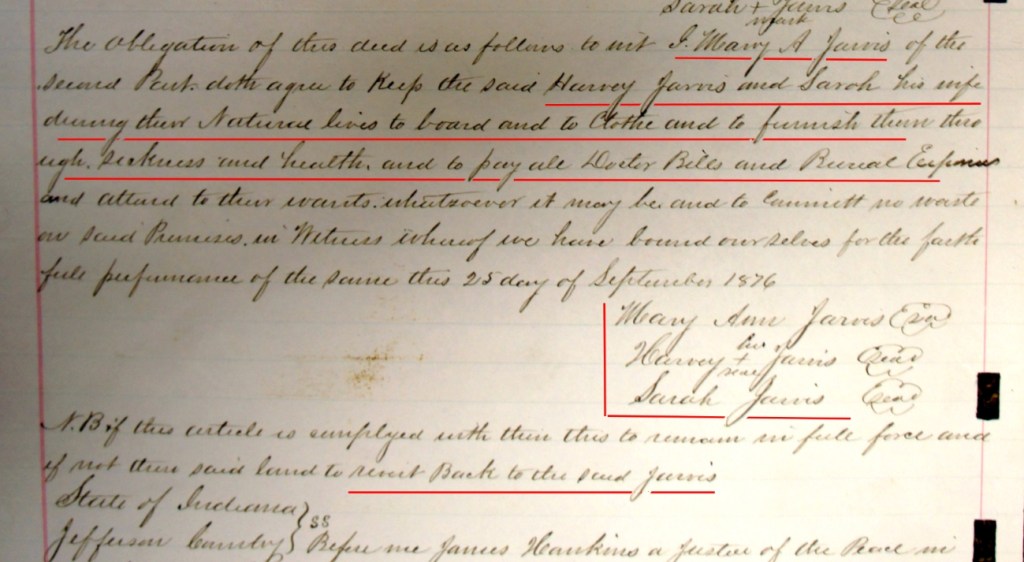 Sarah + Jarvis (Seal
mark
The Obligation of this deed is as follows to wit I. Mary A Jarvis of the
second Part. doth agree to Keep the said Harvey Jarvis and Sarah his wife
during their Natural lives to board and to Clothe and to furnish them thro
ugh. sickness and health. and to pay all Doctor Bills and Burial Expenses
and attend to their wants. whatsoever it may be and to Committ no waste
on said Premises. in Witness whereof we have bound ourselves for the faith
full performance of the same this 25 day of September 1876
Mary Ann Jarvis (Seal)
his
Harvey + Jarvis (Seal)
mark
Sarah Jarvis (Seal)
N.B if this article is complyed with then this to remain in full force and
if not then said land to revert Back to the said Jarvis
State of Indiana }
Jefferson County } SS Before me James Hawkins a Justice of the Peace in